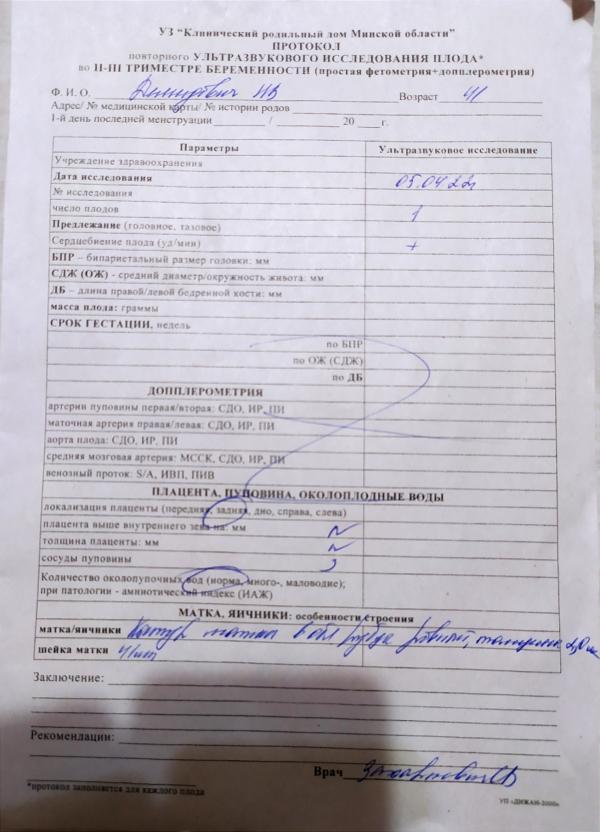 УЗ "Клинический родильный дом Минской области"
ПРОТОКОЛ
повторного УЛЬТРАЗВУКОВОГО ИССЛЕДОВАНИЯ ПЛОДА*
во II-III ТРИМЕСТРЕ БЕРЕМЕННОСТИ (простая фетометрия+допплерометрия)
Ф. И. О. Возраст 41
Адрес/ № медицинской карты/ № истории родов
1-й день последней менструации / 20 г.
Параметры Ультразвуковое исследование
Учреждение здравоохранения
Дата исследования 05.04.22г
№ исследования
число плодов 1
Предлежание (головное, тазовое)
Сердцебиение плода (уд/мин) +
БПР – бипариетальный размер головки: мм
СДЖ (ОЖ) - средний диаметр/окружность живота: мм
ДБ – длина правой/левой бедренной кости: мм
масса плода: граммы
СРОК ГЕСТАЦИИ, недель
по БПР
по ОЖ (СДЖ)
по ДБ
ДОППЛЕРОМЕТРИЯ
артерии пуповины первая/вторая: СДО, ИР, ПИ
маточная артерия правая/левая: СДО, ИР, ПИ
аорта плода: СДО, ИР, ПИ
средняя мозговая артерия: МССК, СДО, ИР, ПИ
венозный проток: S/A, ИВП, ПИВ
ПЛАЦЕНТА, ПУПОВИНА, ОКОЛОПЛОДНЫЕ ВОДЫ
локализация плаценты (передняя, задняя, дно, справа, слева)
плацента выше внутреннего зева на: мм N
толщина плаценты: мм N
сосуды пуповины 3
Количество околопупочных вод (норма, много-, маловодие);
при патологии - амниотический индекс (ИАЖ)
МАТКА, ЯИЧНИКИ: особенности строения
матка/яичники Контур матки в обл рубца ровный, толщина 2,0
шейка матки
Заключение:
Рекомендации:
Врач
*протокол заполняется для каждого плода
УП «ДИЖАН-2000»